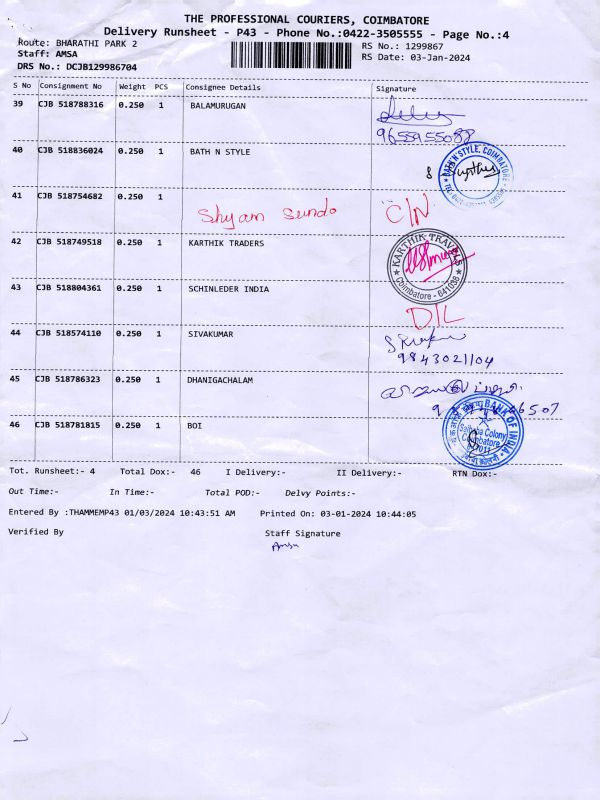 THE PROFESSIONAL COURIERS, COIMBATORE
Delivery Runsheet - P43 - Phone No.:0422-3505555 - Page No.:4
Route: BHARATHI PARK 2 RS No.: 1299867
Staff: AMSA RS Date: 03-Jan-2024
DRS No.: DCJB129986704
S No Consignment No Weight PCS Consignee Details Signature
39 CJB 518788316 0.250 1 BALAMURUGAN
9655955088
40 CJB 518836024 0.250 1 BATH N STYLE
BATH'N STYLE, COIMBATORE
41 CJB 518754682 0.250 1
Shyam Sundo C/N
42 CJB 518749518 0.250 1 KARTHIK TRADERS
KARTHIK TRAVELS
Coimbatore - 641038
43 CJB 518804361 0.250 1 SCHINLEDER INDIA
D/L
44 CJB 518574110 0.250 1 SIVAKUMAR
9843021104
45 CJB 518786323 0.250 1 DHANIGACHALAM
46 CJB 518781815 0.250 1 BOI
BANK OF INDIA
Saibaba Colony
Coimbatore
Tot. Runsheet:- 4 Total Dox:- 46 I Delivery:- II Delivery:- RTN Dox:-
Out Time:- In Time:- Total POD:- Delvy Points:-
Entered By :THAMMEMP43 01/03/2024 10:43:51 AM Printed On: 03-01-2024 10:44:05
Verified By Staff Signature
Amsa